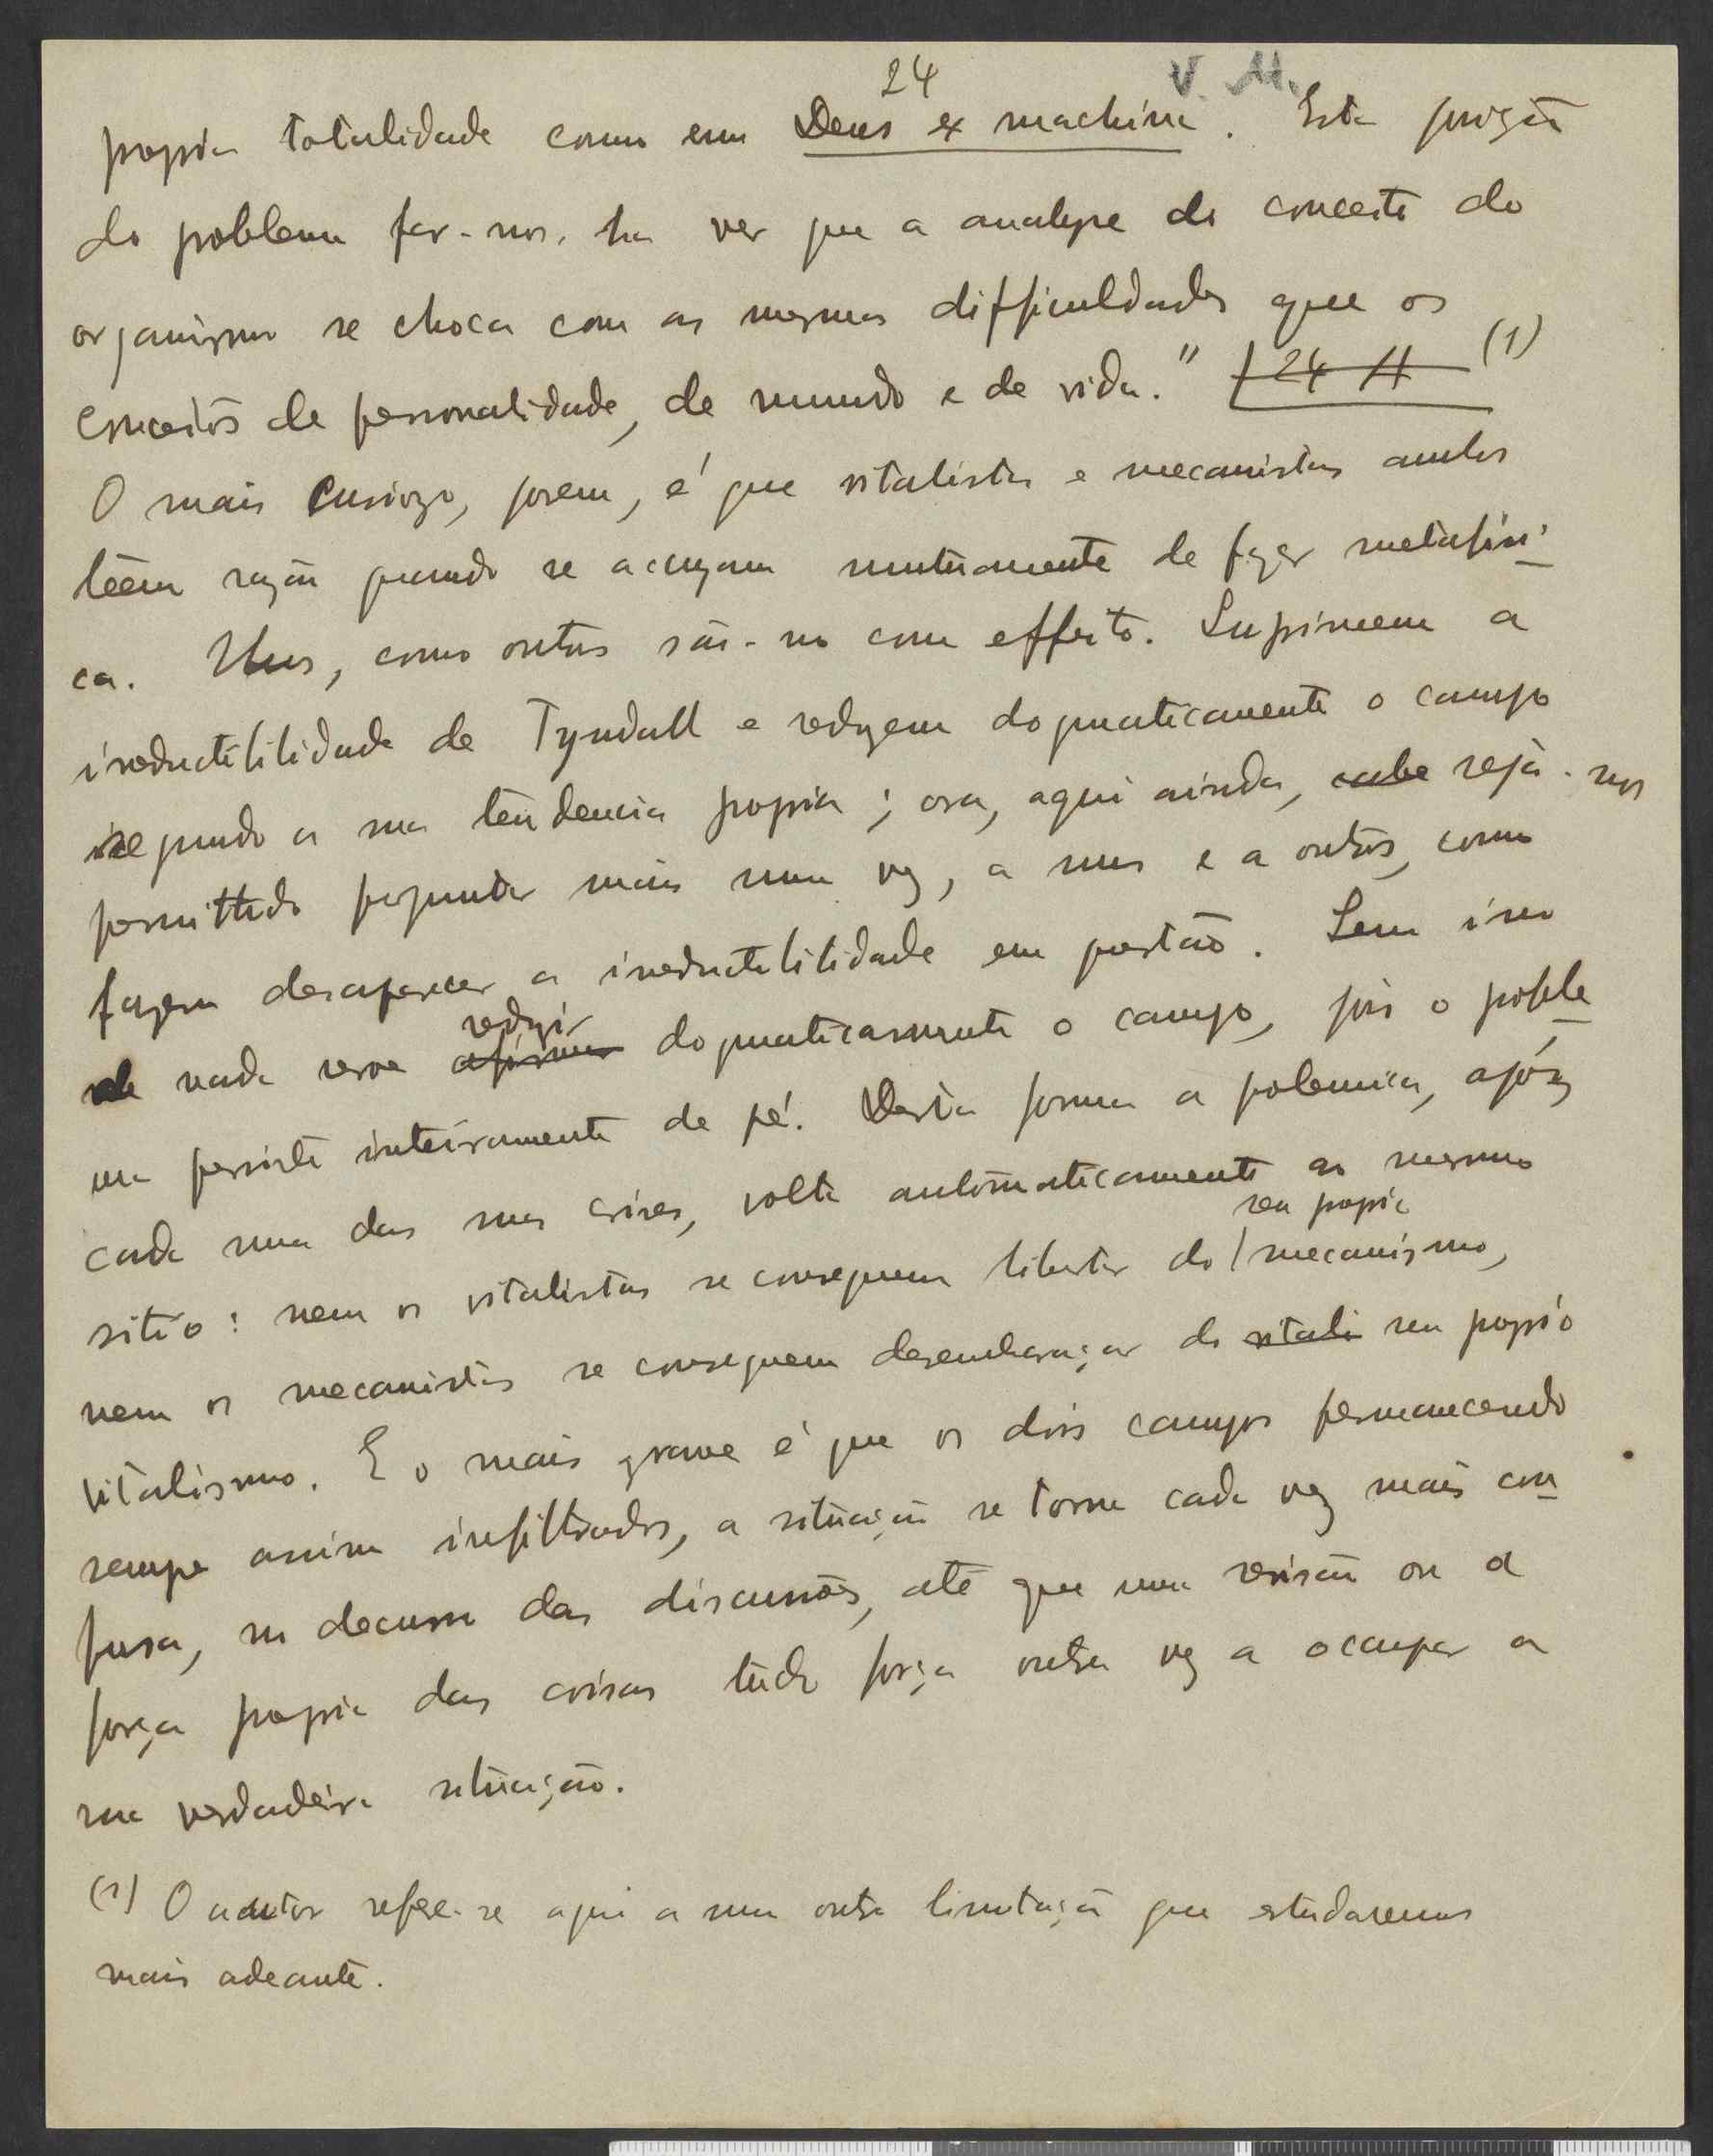 24
V. M.
propria totalidade como em Deus ex machina. Esta posição
do problema far-nos-ha ver que a analyse do conceito do
organismo se choca com as mesmas difficuldades que os
conceitos de personalidade, de mundo e de vida." (24 H (1)
O mais curiozo, porem, é que vitalistas e mecanistas ambos
têem razão quando se accuzam mutuamente de fazer metafisi-
ca. Uns, como outros são-no com effeito. Suprimem a
irreductibilidade de Tyndall e reduzem dogmaticamente o campo
segundo a sua tendencia propria; ora, aqui ainda, cabe seja-nos
permittido perguntar mais uma vez, a uns e a outros, como
fazem desaparecer a irreductibilidade em questão. Sem isso
reduzir
de nada serve afirmar dogmaticamente o campo, pois o proble
ma persiste inteiramente de pé. Desta forma a polemica, apóz
cada uma das suas crises, volta automaticamente ao mesmo
seu proprio
sitio: nem os vitalistas se conseguem libertar do mecanismo,
nem os mecanistas se conseguem desembaraçar do vitali seu proprio
vitalismo. E o mais grave é que os dois campos permanecendo
sempre assim infiltrados, a situação se torna cada vez mais con
fusa, no decurso das discussões, até que uma revisão ou a
força propria das coisas tudo força outra vez a occupar a
sua verdadeira situação.
(1) O auctor refere-se aqui a uma outra limitação que estudaremos
mais adeante.